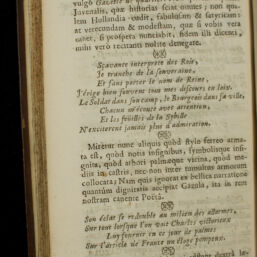 vulgò Gazette
Juvenalis, quæ historias scit omnes; non quæ-
lem Hollandia cudit, fabulosam & satyricam:
at verecundam & modestam, quæ si vobis vera
canet, si prospera nunciabit, fidem illi dicenti,
mihi verò recitanti nolite denegare.
Sçavante interprete des Rois,
Je tranche de la souveraine,
Et sans porter le nom de Reine,
J'érige bien souvent tous mes discours en loix.
Le Soldat dans son camp, le Bourgeois dans sa ville,
Chacun m'écoute avec attention,
Et les feüilles de la Sybille
N'exciterent jamais plus d'admiration.
Miretur nunc aliquis quòd stylo ferreo arma-
ta est, quòd notis insignibus, symbolisque insi-
gnita, quòd arbori palmæque vicina, quòd me-
diis in castris, nec non inter tumultus armorum
collocata; Nam quis ignorat ex bellica narratione
quantùm dignitatis accipiat Gazula, ita in rem
nostram canente Poëtâ.
Son éclat se redouble au milieu des allarmes,
Sur tout lorsque l'on voit Charles victorieux
Luy fournir en ce jour de palmes
Sur l'article de France un éloge pompeux.